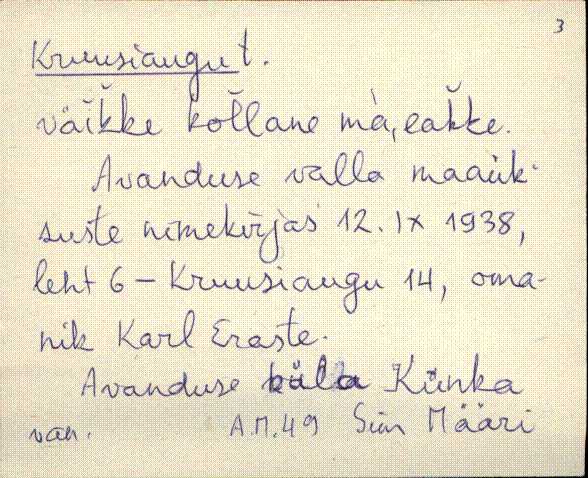 3
Kruusiaugu t.
väikke kollane mà, eakke.
Avanduse valla maaük-
suste nimekirjas 12. IX 1938,
leht 6 – Kruusiaugu 14, oma-
nik Karl Eraste.
Avanduse küla Künka
van. A.M.49 Siim Määri